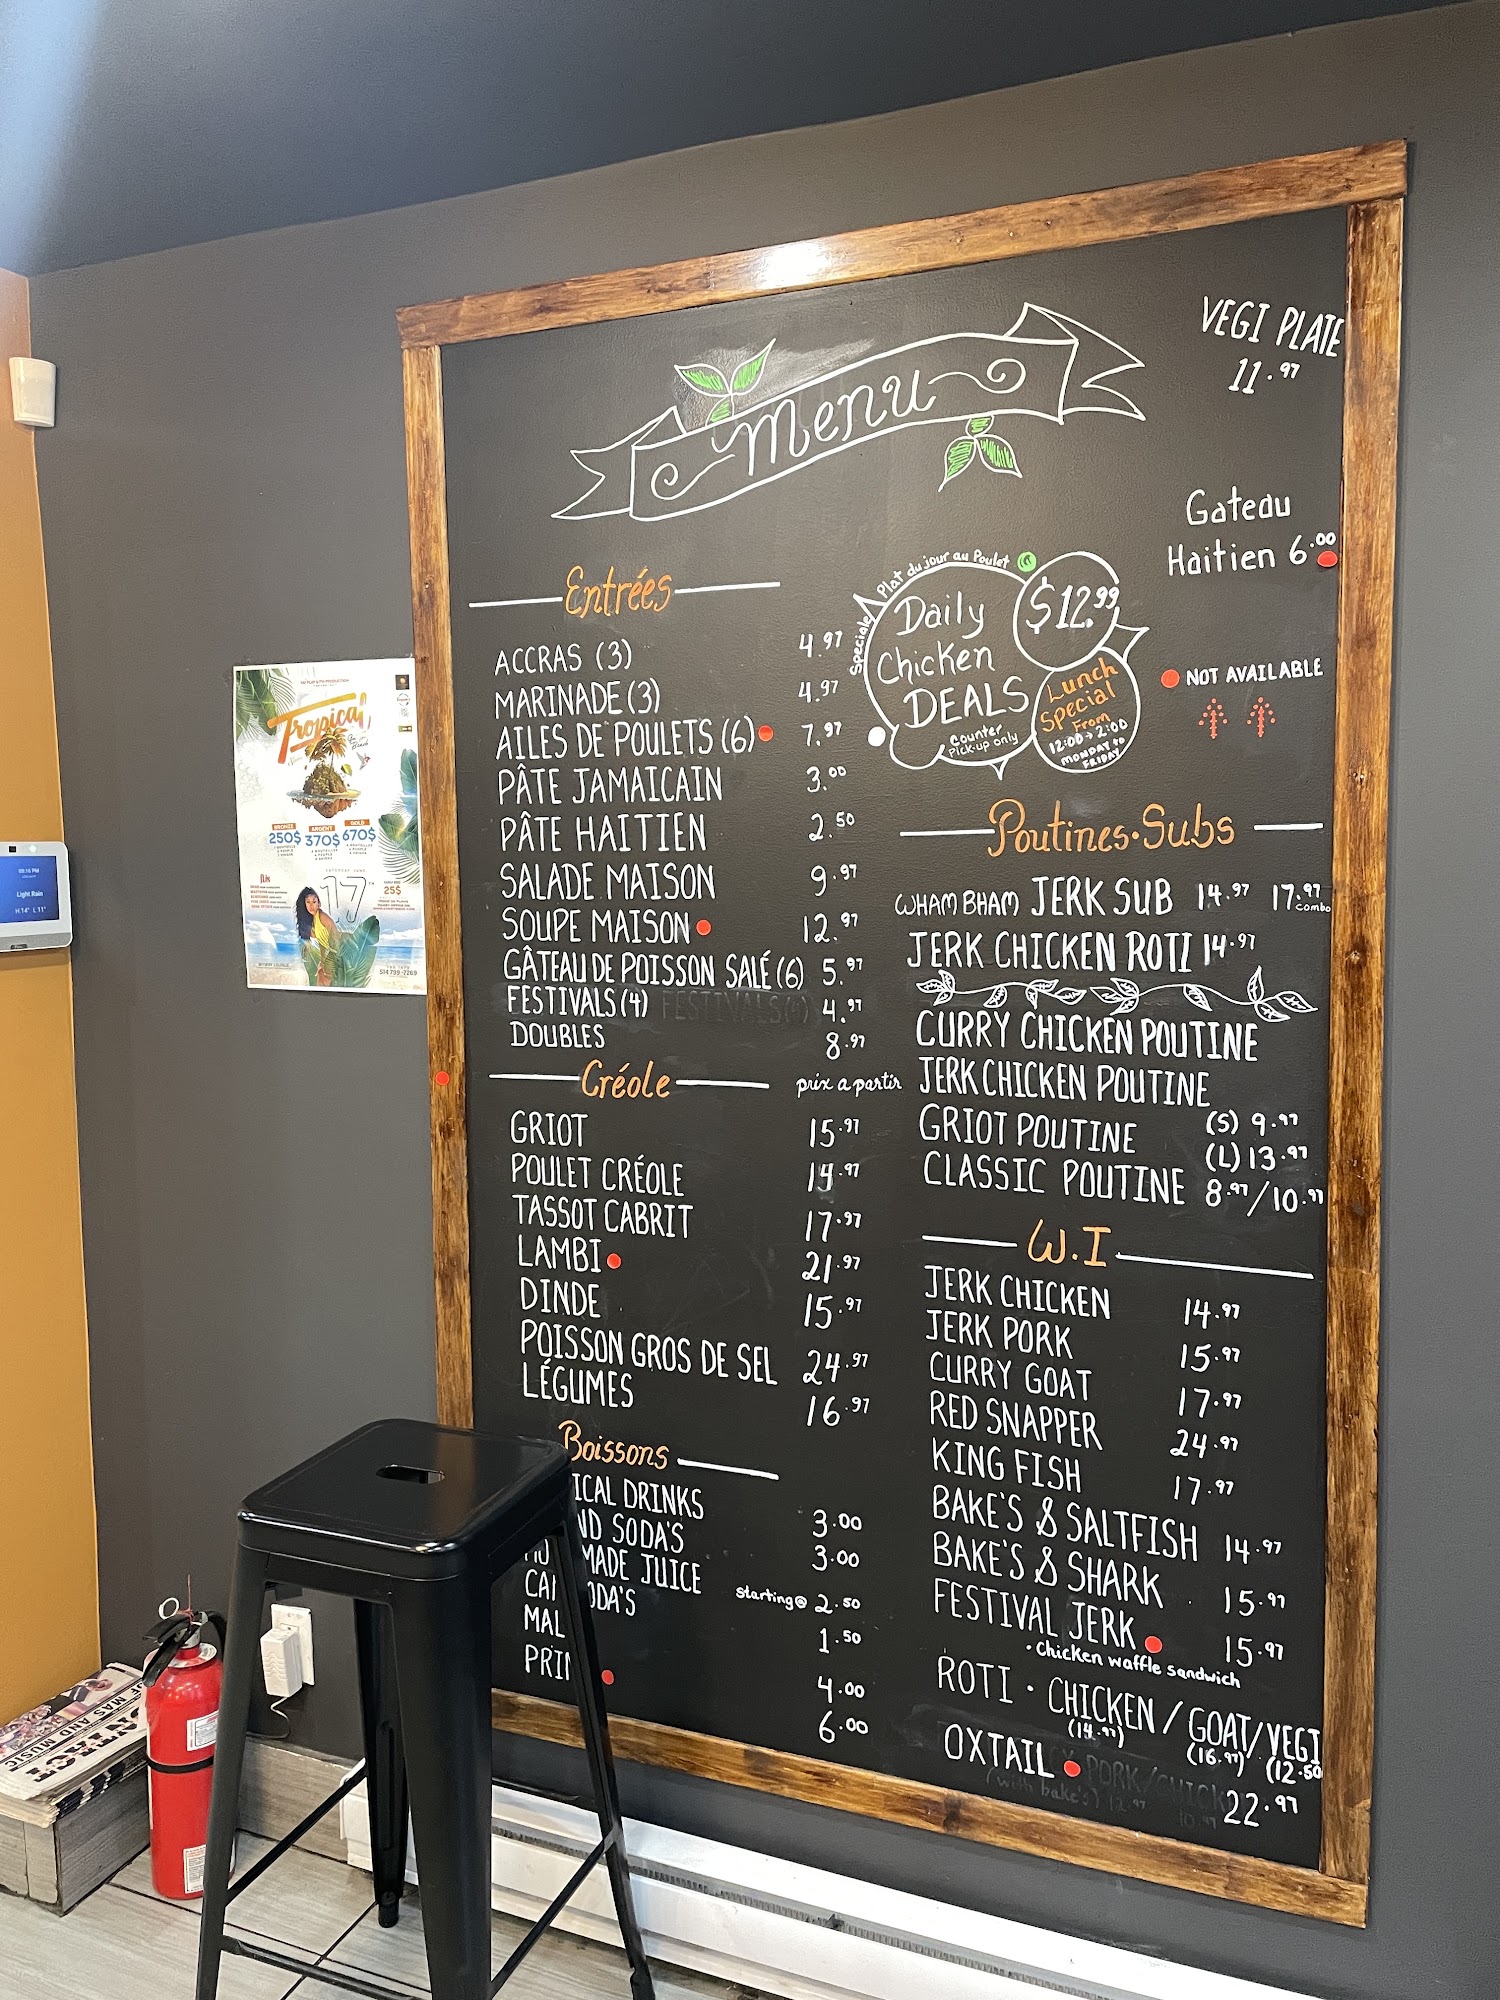 Menu
VEGI PLATE
11.97
Gateau
Haitien 6.00
NOT AVAILABLE
Entrées
ACCRAS (3) 4.97
MARINADE (3) 4.97
AILES DE POULETS (6) 7.97
PÂTE JAMAICAIN 3.00
PÂTE HAITIEN 2.50
SALADE MAISON 9.97
SOUPE MAISON 12.97
GÂTEAU DE POISSON SALÉ (6) 5.97
FESTIVALS (4) FESTIVALS 4.97
DOUBLES 8.97
Créole prix a partir
GRIOT 15.97
POULET CRÉOLE 14.97
TASSOT CABRIT 17.97
LAMBI 21.97
DINDE 15.97
POISSON GROS DE SEL 24.97
LÉGUMES 16.97
Boissons
ICAL DRINKS 3.00
ND SODA'S 3.00
MADE JUICE starting@ 2.50
CA ODA'S 1.50
MAL 4.00
PRI 6.00
Speciale Plat du jour au Poulet
Daily
Chicken
DEALS
Counter
Pick-up only
$12.99
Lunch
Special
From
12:00→2:00
MONDAY to
FRIDAY
Poutines·Subs
WHAM BHAM JERK SUB 14.97 17.97
combo
JERK CHICKEN ROTI 14.97
CURRY CHICKEN POUTINE
JERK CHICKEN POUTINE
GRIOT POUTINE (S) 9.97
(L) 13.97
CLASSIC POUTINE 8.97/10.97
W.I
JERK CHICKEN 14.97
JERK PORK 15.97
CURRY GOAT 17.97
RED SNAPPER 24.97
KING FISH 17.97
BAKE'S & SALTFISH 14.97
BAKE'S & SHARK 15.97
FESTIVAL JERK 15.97
· Chicken waffle sandwich
ROTI · CHICKEN / GOAT/VEGI
(14.97) (16.97) (12.50
OXTAIL 22.97
PORK/CHICK
(with bake's) 12.97
Tropical
BRONZE ARGENT GOLD
250$ 370$ 670$
17TH
25$
514 799-7269
Light Rain
H:14° L:11°
OF MAS AND MUSIC